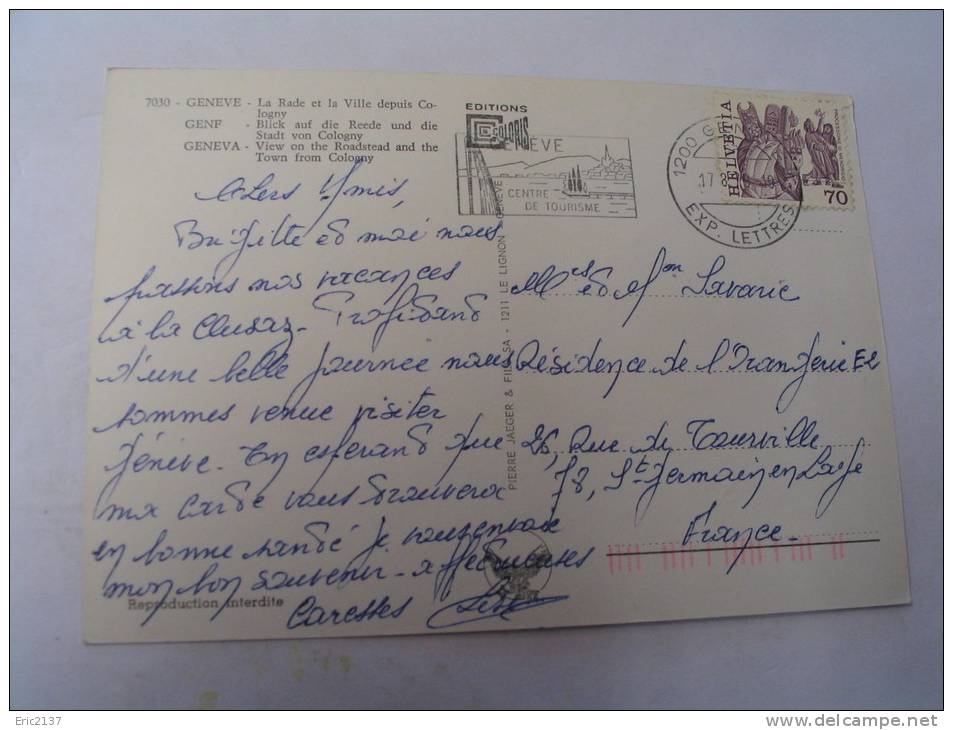 7030 - GENEVE - La Rade et la Ville depuis Co-
logny
GENF - Blick auf die Reede und die
Stadt von Cologny
GENEVA - View on the Roadstead and the
Town from Cologny
EDITIONS
COLORIS
GENÈVE
CENTRE
DE TOURISME
1200 GE
17
EXP. LETTRES
HELVETIA
70
Chers Amis,
Brigitte et moi nous
passons nos vacances
à la Clusaz - Profitant
d'une belle journée nous
sommes venue visiter
Genève. En esperant que
ma carte vous trouvera
en bonne santé je vous envoie
mon bon souvenir - affectueuses
Caresses
PIERRE JAEGER & FILS SA - 1211 LE LIGNON - GENÈVE
et Mon Savaric
Résidence de l'Orangerie E2
26, Rue de Tourville
78, St Germain en Laye
France -
Reproduction interdite
Eric2137